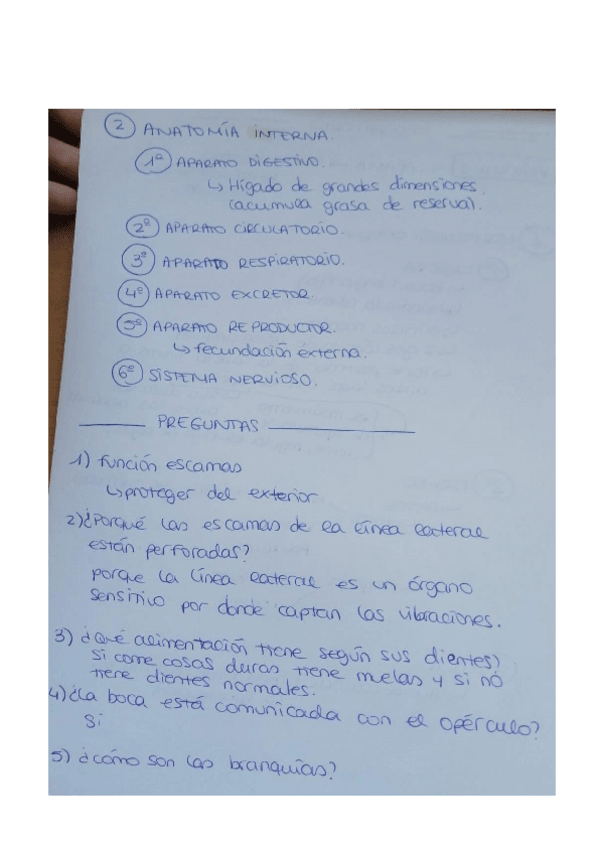 2 ANATOMÍA INTERNA.
1º APARATO DIGESTIVO.
↳ Hígado de grandes dimensiones.
(acumula grasa de reserva).
2º APARATO CIRCULATORIO.
3º APARATO RESPIRATORIO.
4º APARATO EXCRETOR.
5º APARATO REPRODUCTOR.
↳ fecundación externa.
6º SISTEMA NERVIOSO.
PREGUNTAS
1) función escamas
↳ proteger del exterior
2) ¿Porqué las escamas de la línea lateral
están perforadas?
porque la línea lateral es un órgano
sensitivo por donde captan las vibraciones.
3) ¿Qué alimentación tiene según sus dientes?
si come cosas duras tiene muelas y si nó
tiene dientes normales.
4) ¿La boca está comunicada con el opérculo?
Sí
5) ¿cómo son las branquias?